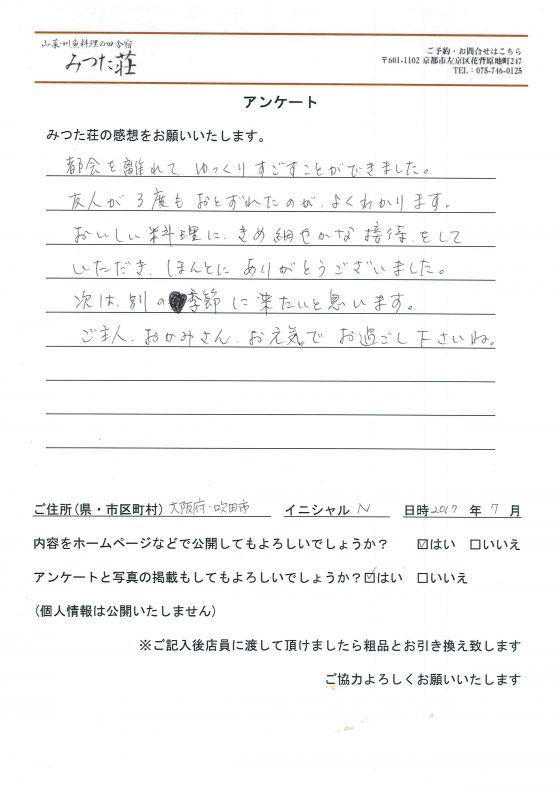 山菜・川魚料理の田舎宿
みつた荘
ご予約・お問合せはこちら
〒601-1102 京都市左京区花脊原地町247
TEL：075-746-0125
アンケート
みつた荘の感想をお願いいたします。
都会を離れて ゆっくりすごすことができました。
友人が 3度も おとずれたのが、よくわかります。
おいしい料理に、きめ細やかな 接待、をして
いただき、ほんとに ありがとうございました。
次は、別の季節に来たいと思います。
ご主人、おかみさん、お元気で お過ごし下さいね。
ご住所(県・市区町村) 大阪府・吹田市 イニシャル N 日時2017 年 7 月
内容をホームページなどで公開してもよろしいでしょうか？ ☑はい □いいえ
アンケートと写真の掲載もしてもよろしいでしょうか？☑はい □いいえ
(個人情報は公開いたしません)
※ご記入後店員に渡して頂けましたら粗品とお引き換え致します
ご協力よろしくお願いいたします